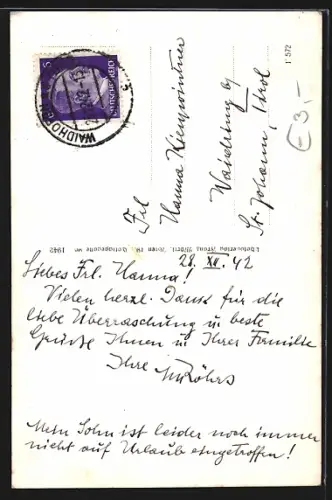 5
DEUTSCHES REICH
WAIDHOFEN
I 572
Frl
Hanna Kienpointner
Waidring 9
St. Johann, Tirol
€ 3,-
1942
28. XII. 42
Liebes Frl. Hanna!
Vielen herzl. Dank für die
liebe Überraschung u. beste
Grüße Ihnen u Ihrer Familie
Ihre M Röhrs
Mein Sohn ist leider noch immer
nicht auf Urlaub eingetroffen!